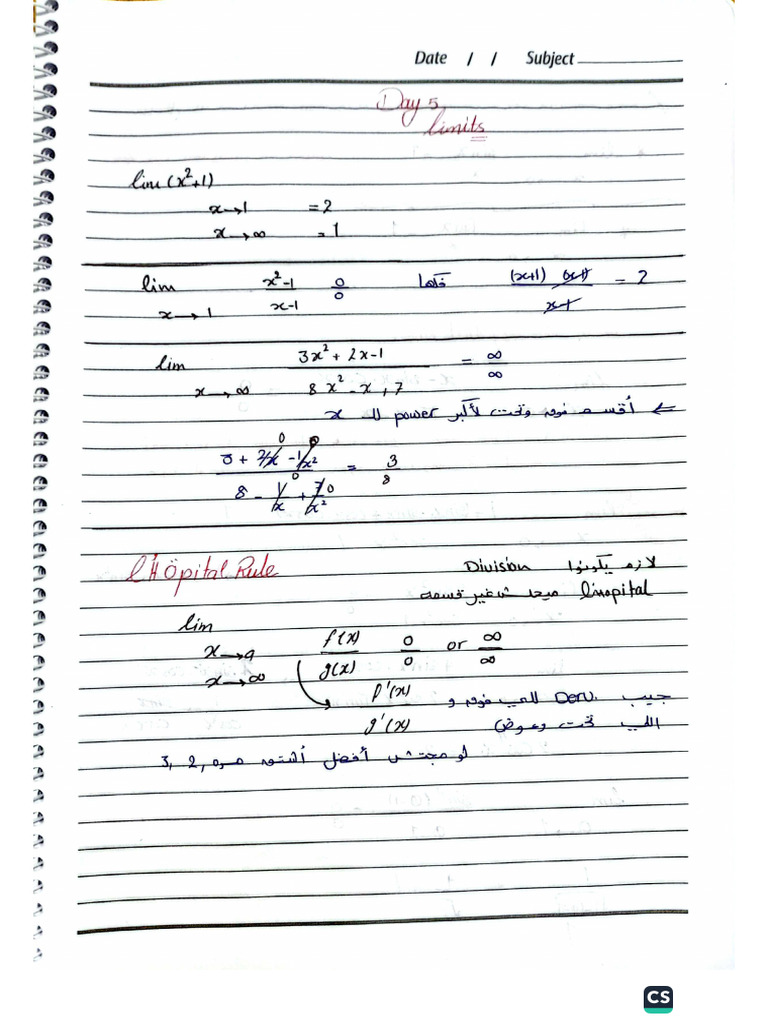 Date / / Subject
Day 5
limits
lim (x²+1)
x→1 = 2
x→∞ = 1
lim x→1 (x²-1)/(x-1) 0/0 (x+1)(x-1)/(x-1) = 2
lim x→∞ (3x² + 2x-1)/(8x² - x, 7) = ∞/∞
← أقسم فوق وتحت لأكبر power لل x
(3 + 2/x - 1/x²)/(8 - 1/x + 7/x²) = 3/8
L'Höpital Rule لازم يكونوا Division
lhopital غير قسمة
lim x→a x→∞ f(x)/g(x) 0/0 or ∞/∞
f'(x) جيب Derv. اللي فوق و
g'(x) اللي تحت وعوض
لو مجتش أفضل أشتق مرة, 2, 3
CS